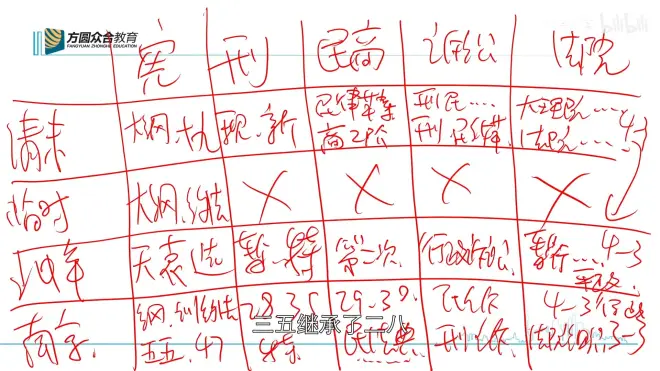 方圆众合教育
FANGYUAN ZHONGHE EDUCATION
bilibili
宪 刑 民商 诉讼 法院
清末 大纲、十九 现、新 民律草案 刑民…… 大理院…… 4-3
商 刑、民 法院……
临时 大纲、约法 X X X X
北洋 天袁选 暂、特 第二次 行政 暂行…… 4-3
南京 纲、训约法 28 35 29-30 民 刑 4-3
五五、47 特 民法典 3-3
三五继承了二八